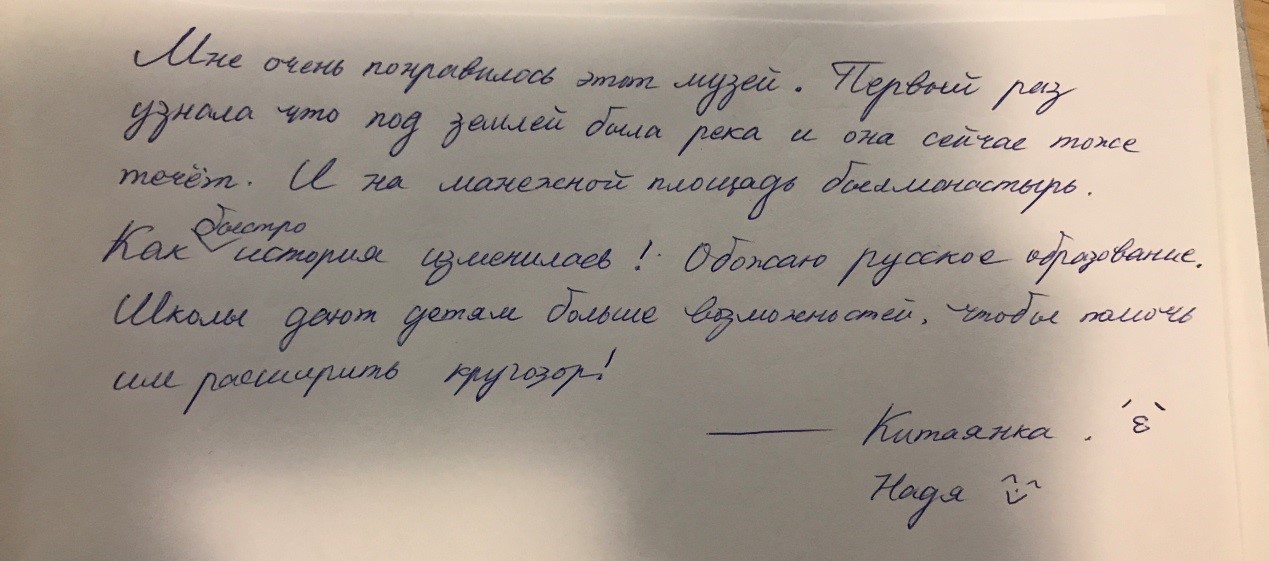 Мне очень понравилось этот музей. Первый раз
узнала что под землей была река и она сейчас тоже
течёт. И на манежной площадь был монастырь.
Как быстро история изменилась! Обожаю русское образование.
Школы дают детям больше возможностей, чтобы помочь
им расширить кругозор!
— Китаянка. 'ε'
Надя ^‿^